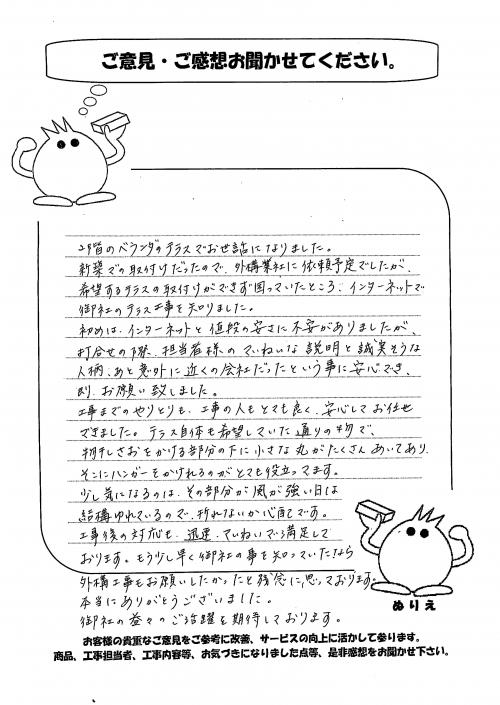 ご意見・ご感想お聞かせてください。
2階のベランダのテラスでお世話になりました。
新築での取付けだったので、外構業社に依頼予定でしたが、
希望するテラスの取付けができず困っていたところ、インターネットで
御社のテラス工事を知りました。
初めは、インターネットと値段の安さに不安がありましたが、
打合せの際、担当者様のていねいな説明と誠実そうな
人柄、あと意外に近くの会社だったという事に安心でき、
即、お願い致しました。
工事までのやりとりも、工事の人もとても良く、安心してお任せ
できました。テラス自体も希望していた通りの物で、
物干しさおをかける部分の下に小さな丸がたくさんあいてあり、
そこにハンガーをかけれるのがとても役立ってます。
少し気になるのは、その部分が風が強い日は
結構ゆれているので、折れないか心配です。
工事後の対応も、迅速、ていねいで満足して
おります。もう少し早く御社の事を知っていたなら
外構工事もお願いしたかったと残念に思っております。
本当にありがとうございました。
御社の益々のご活躍を期待しております。
ぬりえ
お客様の貴重なご意見をご参考に改善、サービスの向上に活かして参ります。
商品、工事担当者、工事内容等、お気づきになりました点等、是非感想をお聞かせ下さい。